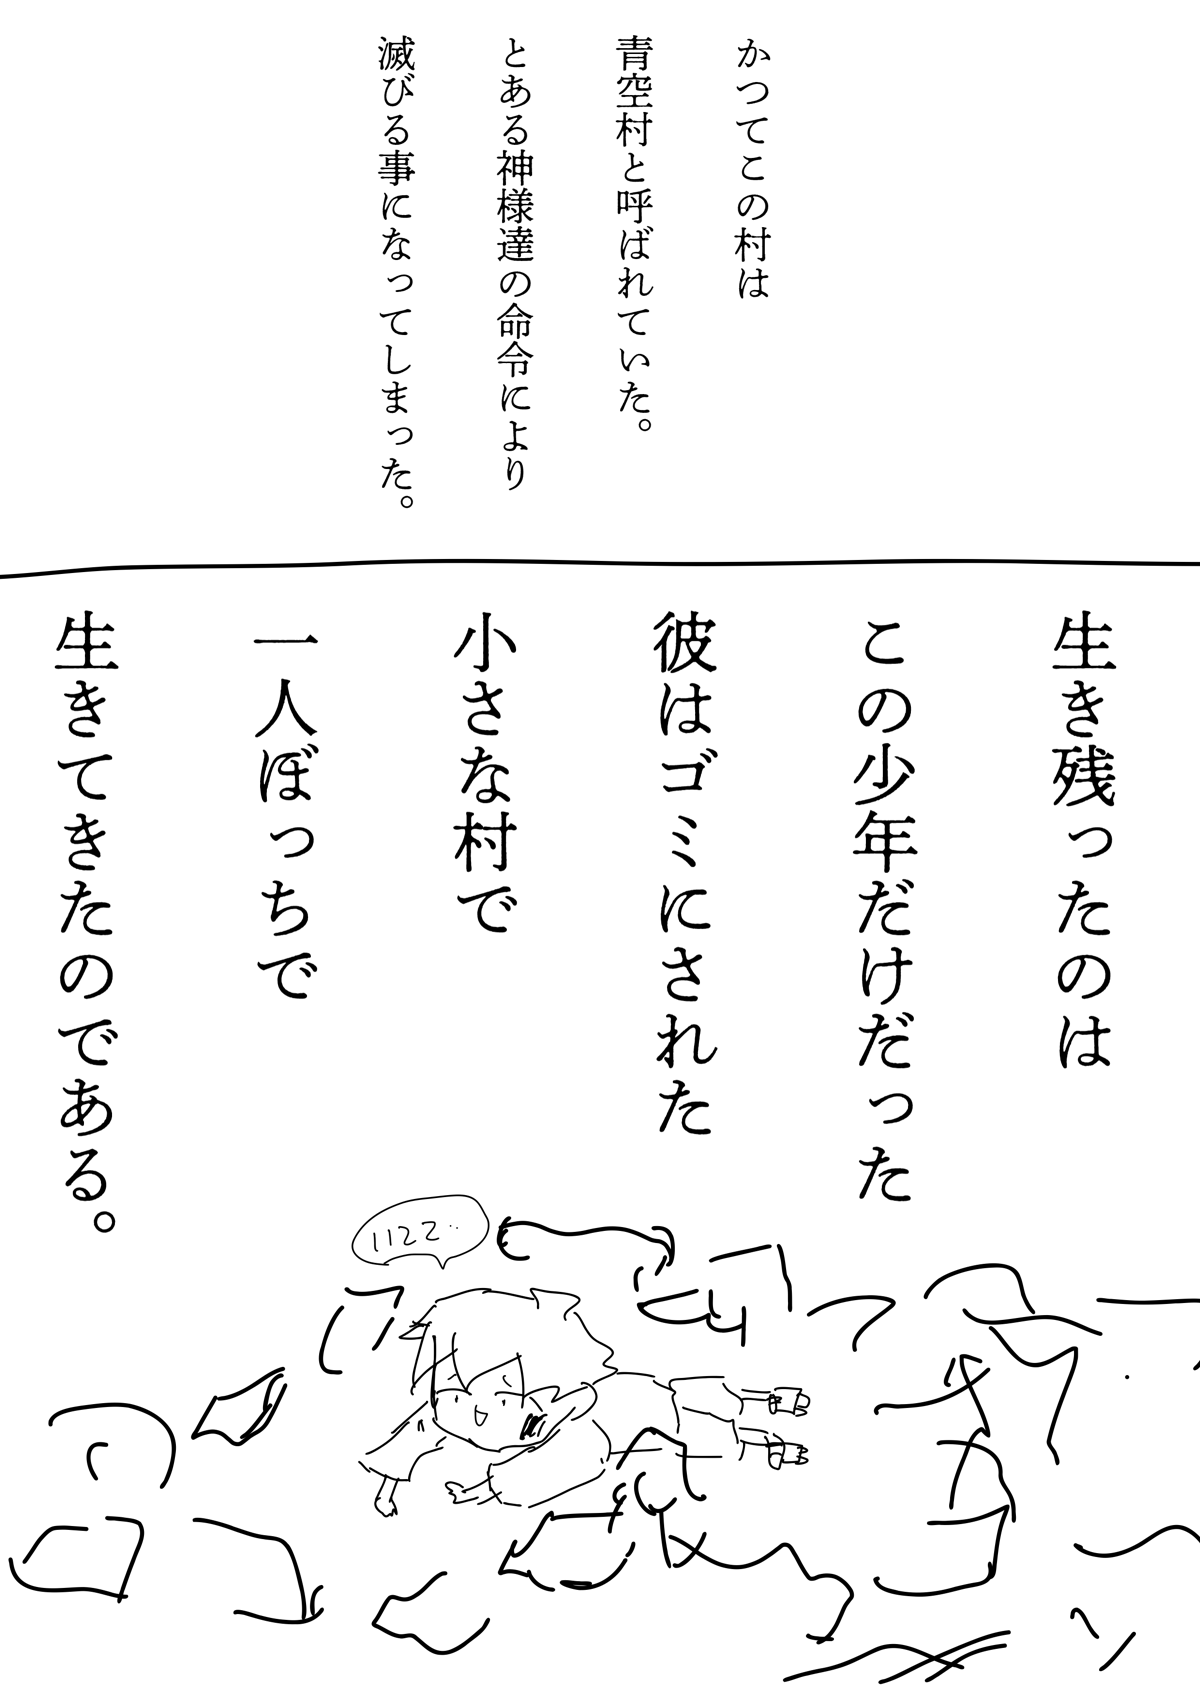 かつてこの村は
青空村と呼ばれていた。
とある神様達の命令により
滅びる事になってしまった。
生き残ったのは
この少年だけだった
彼はゴミにされた
小さな村で
一人ぼっちで
生きてきたのである。